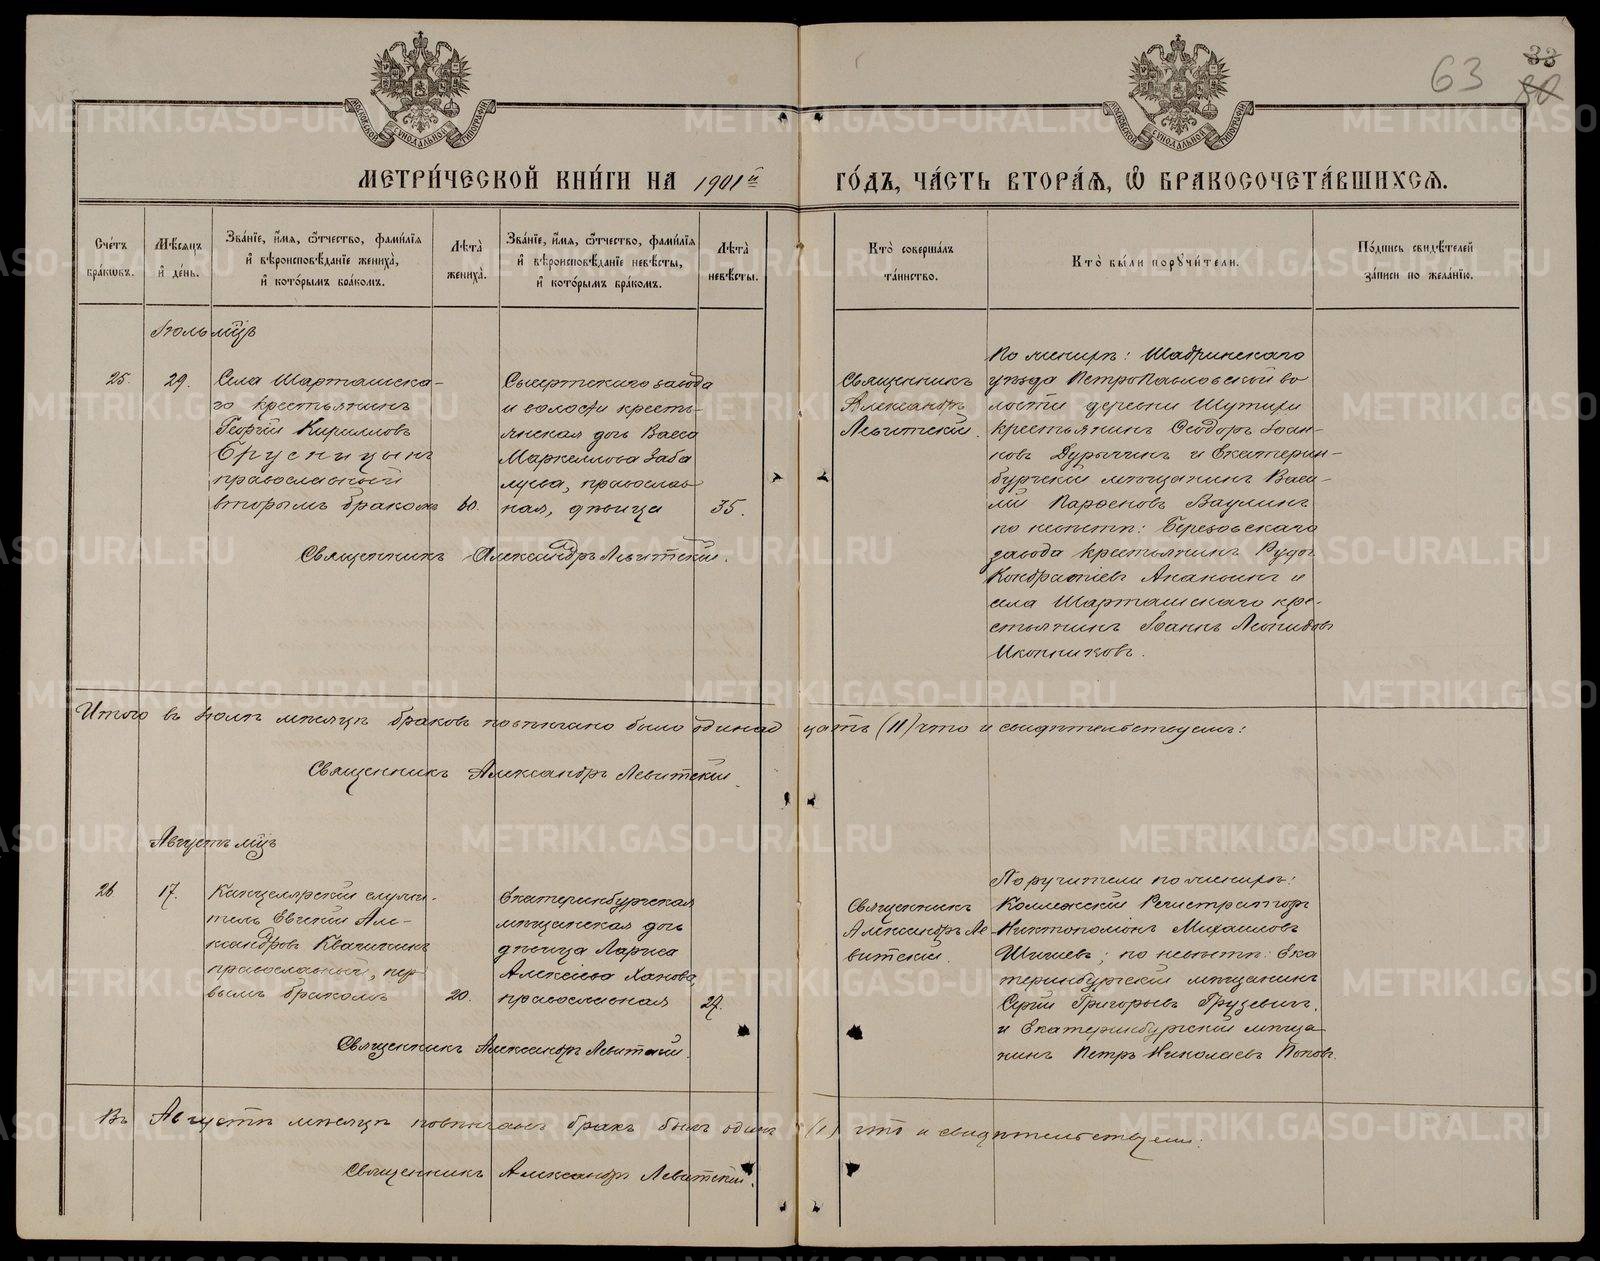 63
33
МЕТРИ́ЧЕСКОЙ КНИ́ГИ НА 1901й
ГО́ДЪ, ЧА́СТЬ ВТОРА́Я, Ѿ БРАКОСОЧЕТА́ВШИХСЯ.
МОСКОВСКОЙ СѴНОДАЛЬНОЙ ТИПОГРАФІИ
МОСКОВСКОЙ СѴНОДАЛЬНОЙ ТИПОГРАФІИ
Сче́тъ
бра́кѡвъ.
Мѣ́сяцъ
и҆ де́нь.
Зва́нїе, и҆́мя, ѻ҆́тчество, фами́лїя
и҆ вѣроисповѣ́данїе жениха̀,
и҆ кото́рымъ бра́комъ.
Лѣта̀
жениха̀.
Зва́нїе, и҆́мя, ѻ҆́тчество, фами́лїя
и҆ вѣроисповѣ́данїе невѣ́сты,
и҆ кото́рымъ бра́комъ.
Лѣта̀
невѣ́сты.
Кто̀ соверша́лъ
та́инство.
Кто̀ бы́ли поручи́тели.
По́дпись свидѣ́телей
за́писи по жела́нїю.
Іюль мцъ
25.
29.
Села Шарташска-
го крестьянинъ
Георгій Кирилловъ
Брусницынъ
православный
вторымъ бракомъ
60.
Сысертскаго завода
и волости кресть-
янская дочь Васса
Маркеллова Заба
луева, православ
ная, дѣвица
35.
Священникъ Александръ Левитскій.
Священникъ
Александръ
Левитскій.
По женихѣ: Шадринскаго
уѣзда Петропавловской во
лости деревни Шутихи
крестьянинъ Ѳеодоръ Іоан-
новъ Дурыгинъ и Екатерин-
бургскій мѣщанинъ Васи-
лій Парѳеновъ Ваулинъ
по невѣстѣ: Березовскаго
завода крестьянинъ Руфъ
Кондратіевъ Ананьинъ и
села Шарташскаго кре-
стьянинъ Іоаннъ Леонидовъ
Иконниковъ.
Итого въ Іюлѣ мѣсяцѣ браковъ повѣнчано было одинад цать (11) что и свидѣтельствуемъ:
Священникъ Александръ Левитскій.
Августъ мцъ
26
17.
Канцелярскій служи-
тель Евгеній Але-
ксандровъ Квачинкъ
православный, пер
вымъ бракомъ
20.
Екатеринбургская
мѣщанская дочь
дѣвица Лариса
Алексіева Ханова,
православная
27.
Священникъ Александръ Левитскій.
Священникъ
Александръ Ле
витскій.
Поручители по женихѣ:
Коллежскій Регистраторъ
Никтополіонъ Михаиловъ
Шигаевъ; по невѣстѣ: Ека
теринбургскій мѣщанинъ
Сергій Григорьевъ Грузевичъ.
и Екатеринбургскій мѣща
нинъ Петръ Николаевъ Поповъ.
Въ Августѣ мѣсяцѣ повѣнчанъ бракъ былъ одинъ (1) что и свидѣтельствуемъ:
Священникъ Александръ Левитскій.
METRIKI.GASO-URAL.RU